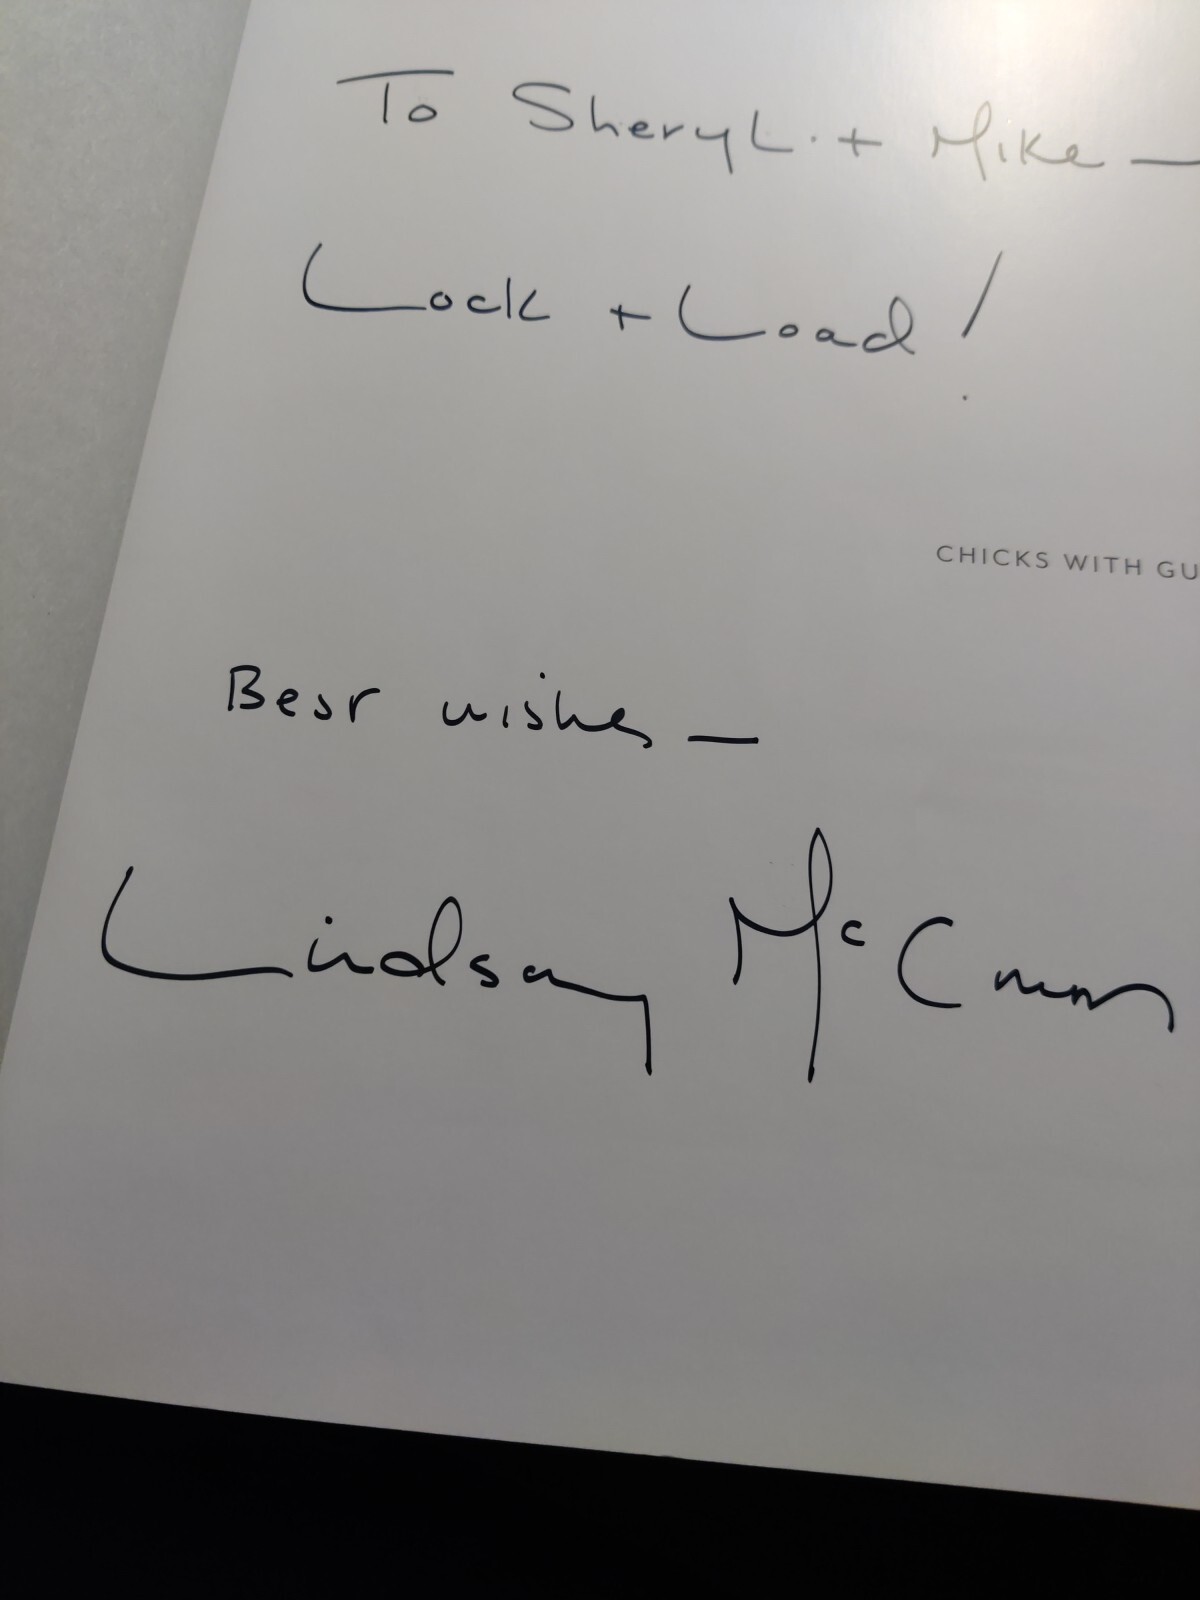 To Sheryl + Mike —
Lock + Load!
CHICKS WITH GU
Best wishes —
Lindsay McCrum